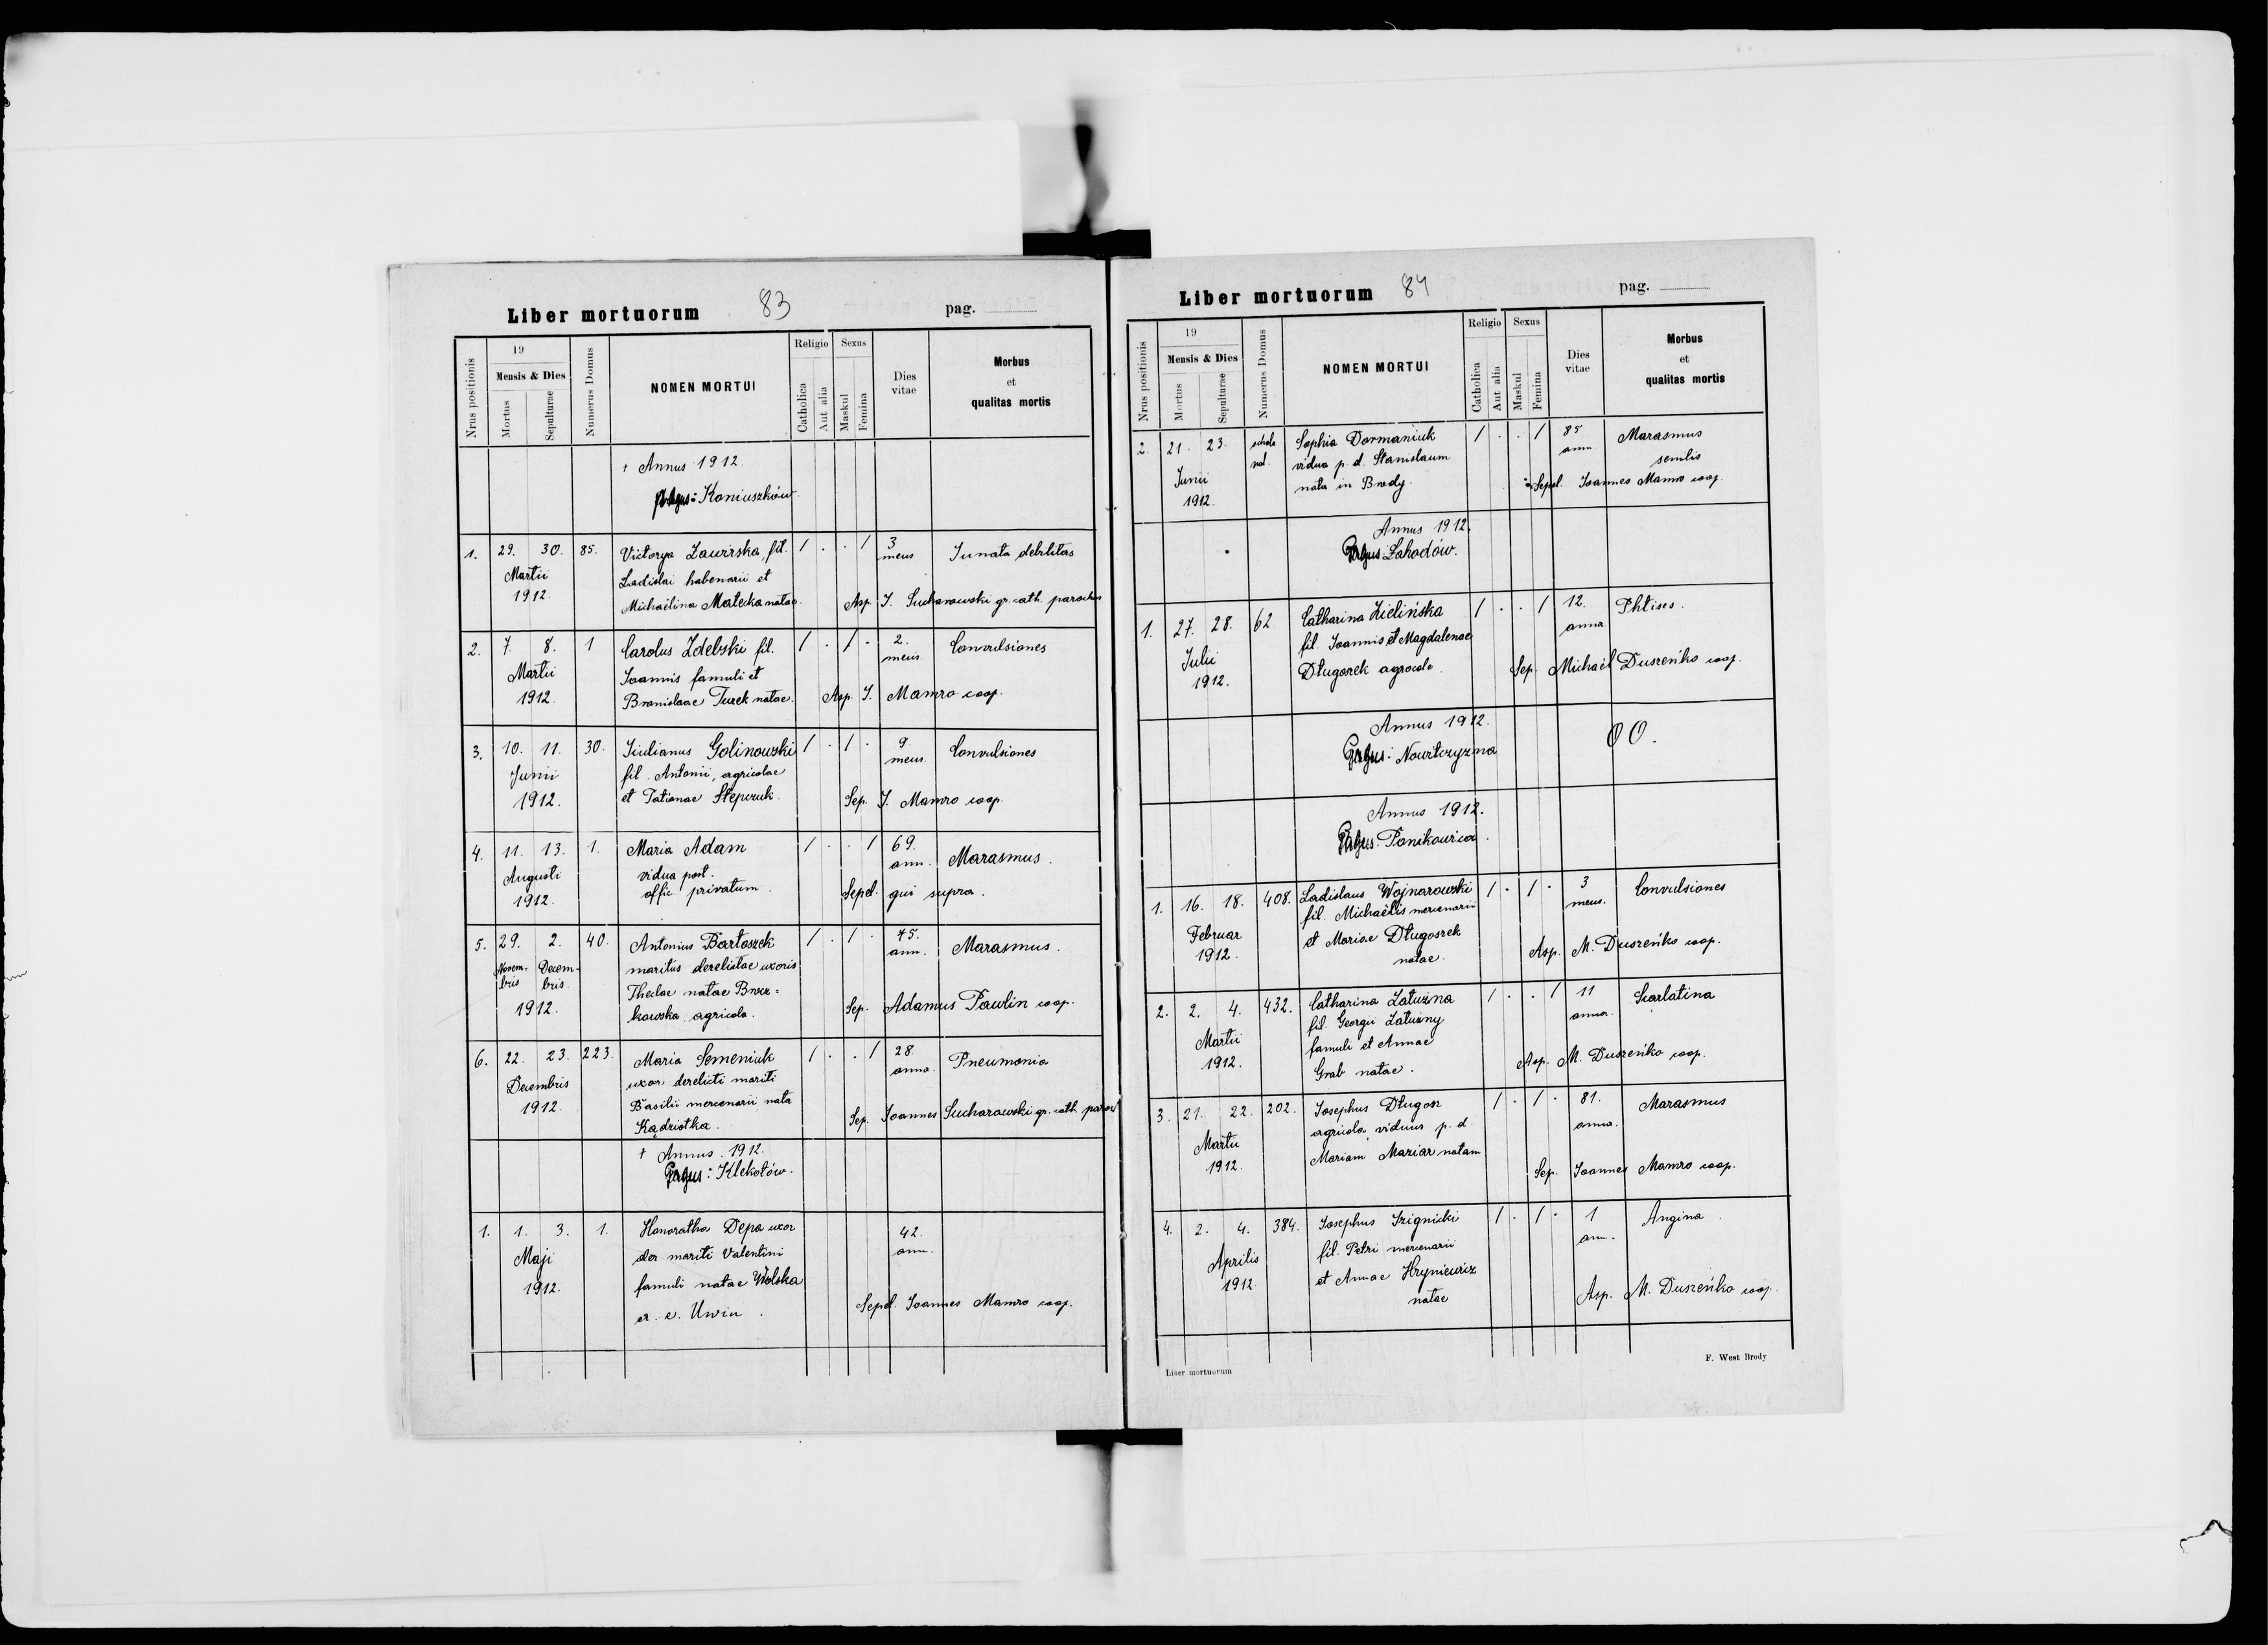 Liber mortuorum 83 pag.
Nrus positionis 19 Mensis & Dies Mortus Sepulturae Numerus Domus NOMEN MORTUI Religio Catholica Aut alia Sexus Maskul Femina Dies vitae Morbus et qualitas mortis
† Annus 1912.
Pagus: Koniuszków.
1. 29. 30. 85. Victorya Zawirska, fil. / . . / 3 Innata debilitas
Martii Ladislai habenarii et mens
1912. Michaëlina Matecka natae. Asp. J. Sucharowski gr. cath. parochus
2. 7. 8. 1 Carolus Zdebski fil. / . / . 2. Convulsiones
Martii Joannis famuli et mens.
1912. Bronislaae Turek natae. Asp. J. Mamro coop.
3. 10. 11. 30. Iiulianus Golinowski / . / . 9. Convulsiones
Junii fil. Antonii, agricolae mens.
1912. et Tatianae Stepczuk. Sep. J. Mamro coop.
4. 11. 13. 1. Maria Adam / . . / 69. Marasmus.
Augusti vidua post. ann.
1912. offic. privatum. Sepel. qui supra.
5. 29. 2. 40. Antonius Bartoszek / . / . 45. Marasmus.
Novem- Decem- maritus derelictae uxoris ann.
bris bris Theclae natae Brocz=
1912. kowska agricola. Sep. Adamus Pawlin coop.
6. 22. 23. 223. Maria Semeniuk / . . / 28. Pneumonia
Decembris uxor derelicti mariti anno.
1912. Basilii mercenarii nata
Kądziołka. Sep. Joannes Sucharowski gr. cath. paroch
† Annus. 1912.
Pagus: Klekotów.
1. 1. 3. 1. Honoratha Depa uxor 42.
Maji der mariti Valentini ann.
1912. famuli natae Wolska
ex. e. Uwin. Sepel. Joannes Mamro coop.
Liber mortuorum 84 pag.
Nrus positionis 19 Mensis & Dies Mortus Sepulturae Numerus Domus NOMEN MORTUI Religio Catholica Aut alia Sexus Maskul Femina Dies vitae Morbus et qualitas mortis
2. 21. 23. schola Sophia Dormaniuk / . . / 85 Marasmus
Junii vidua p. d. Stanislaum ann. senilis
1912. nata in Brody. Sepel. Joannes Mamro coop.
Annus 1912.
Pagus: Łahodów.
1. 27. 28. 62 Catharina Zielińska / . . / 12. Phtises.
Julii fil. Joannis et Magdalenae anna
1912. Długoszek agricole. Sep. Michaël Duszeńko coop.
Annus 1912.
Pagus: Nowitczyzna 00.
Annus 1912.
Pagus: Ponikowica.
1. 16. 18. 408. Ladislaus Wojnarowski / . / . 3 Convulsiones
Februar fil. Michaëlis mercenarii mens.
1912. et Mariae Długoszek
natae. Asp. M. Duszeńko coop.
2. 2. 4. 432. Catharina Załuzna / . . / 11 Scarlatina
Martii fil. Georgii Załuzny anna.
1912. famuli et Annae
Grab natae. Asp. M. Duszeńko coop.
3. 21. 22. 202. Josephus Długosz / . / . 81. Marasmus
Martii agricola, viduus p. d. anna.
1912. Mariam Maziar natam
Sep. Joannes Mamro coop.
4. 2. 4. 384. Josephus Szignicki / . / . 1 Angina.
Aprilis fil. Petri mercenarii ann.
1912. et Annae Hryniewicz
natae Asp. M. Duszeńko coop.
Liber mortuorum F. West Brody